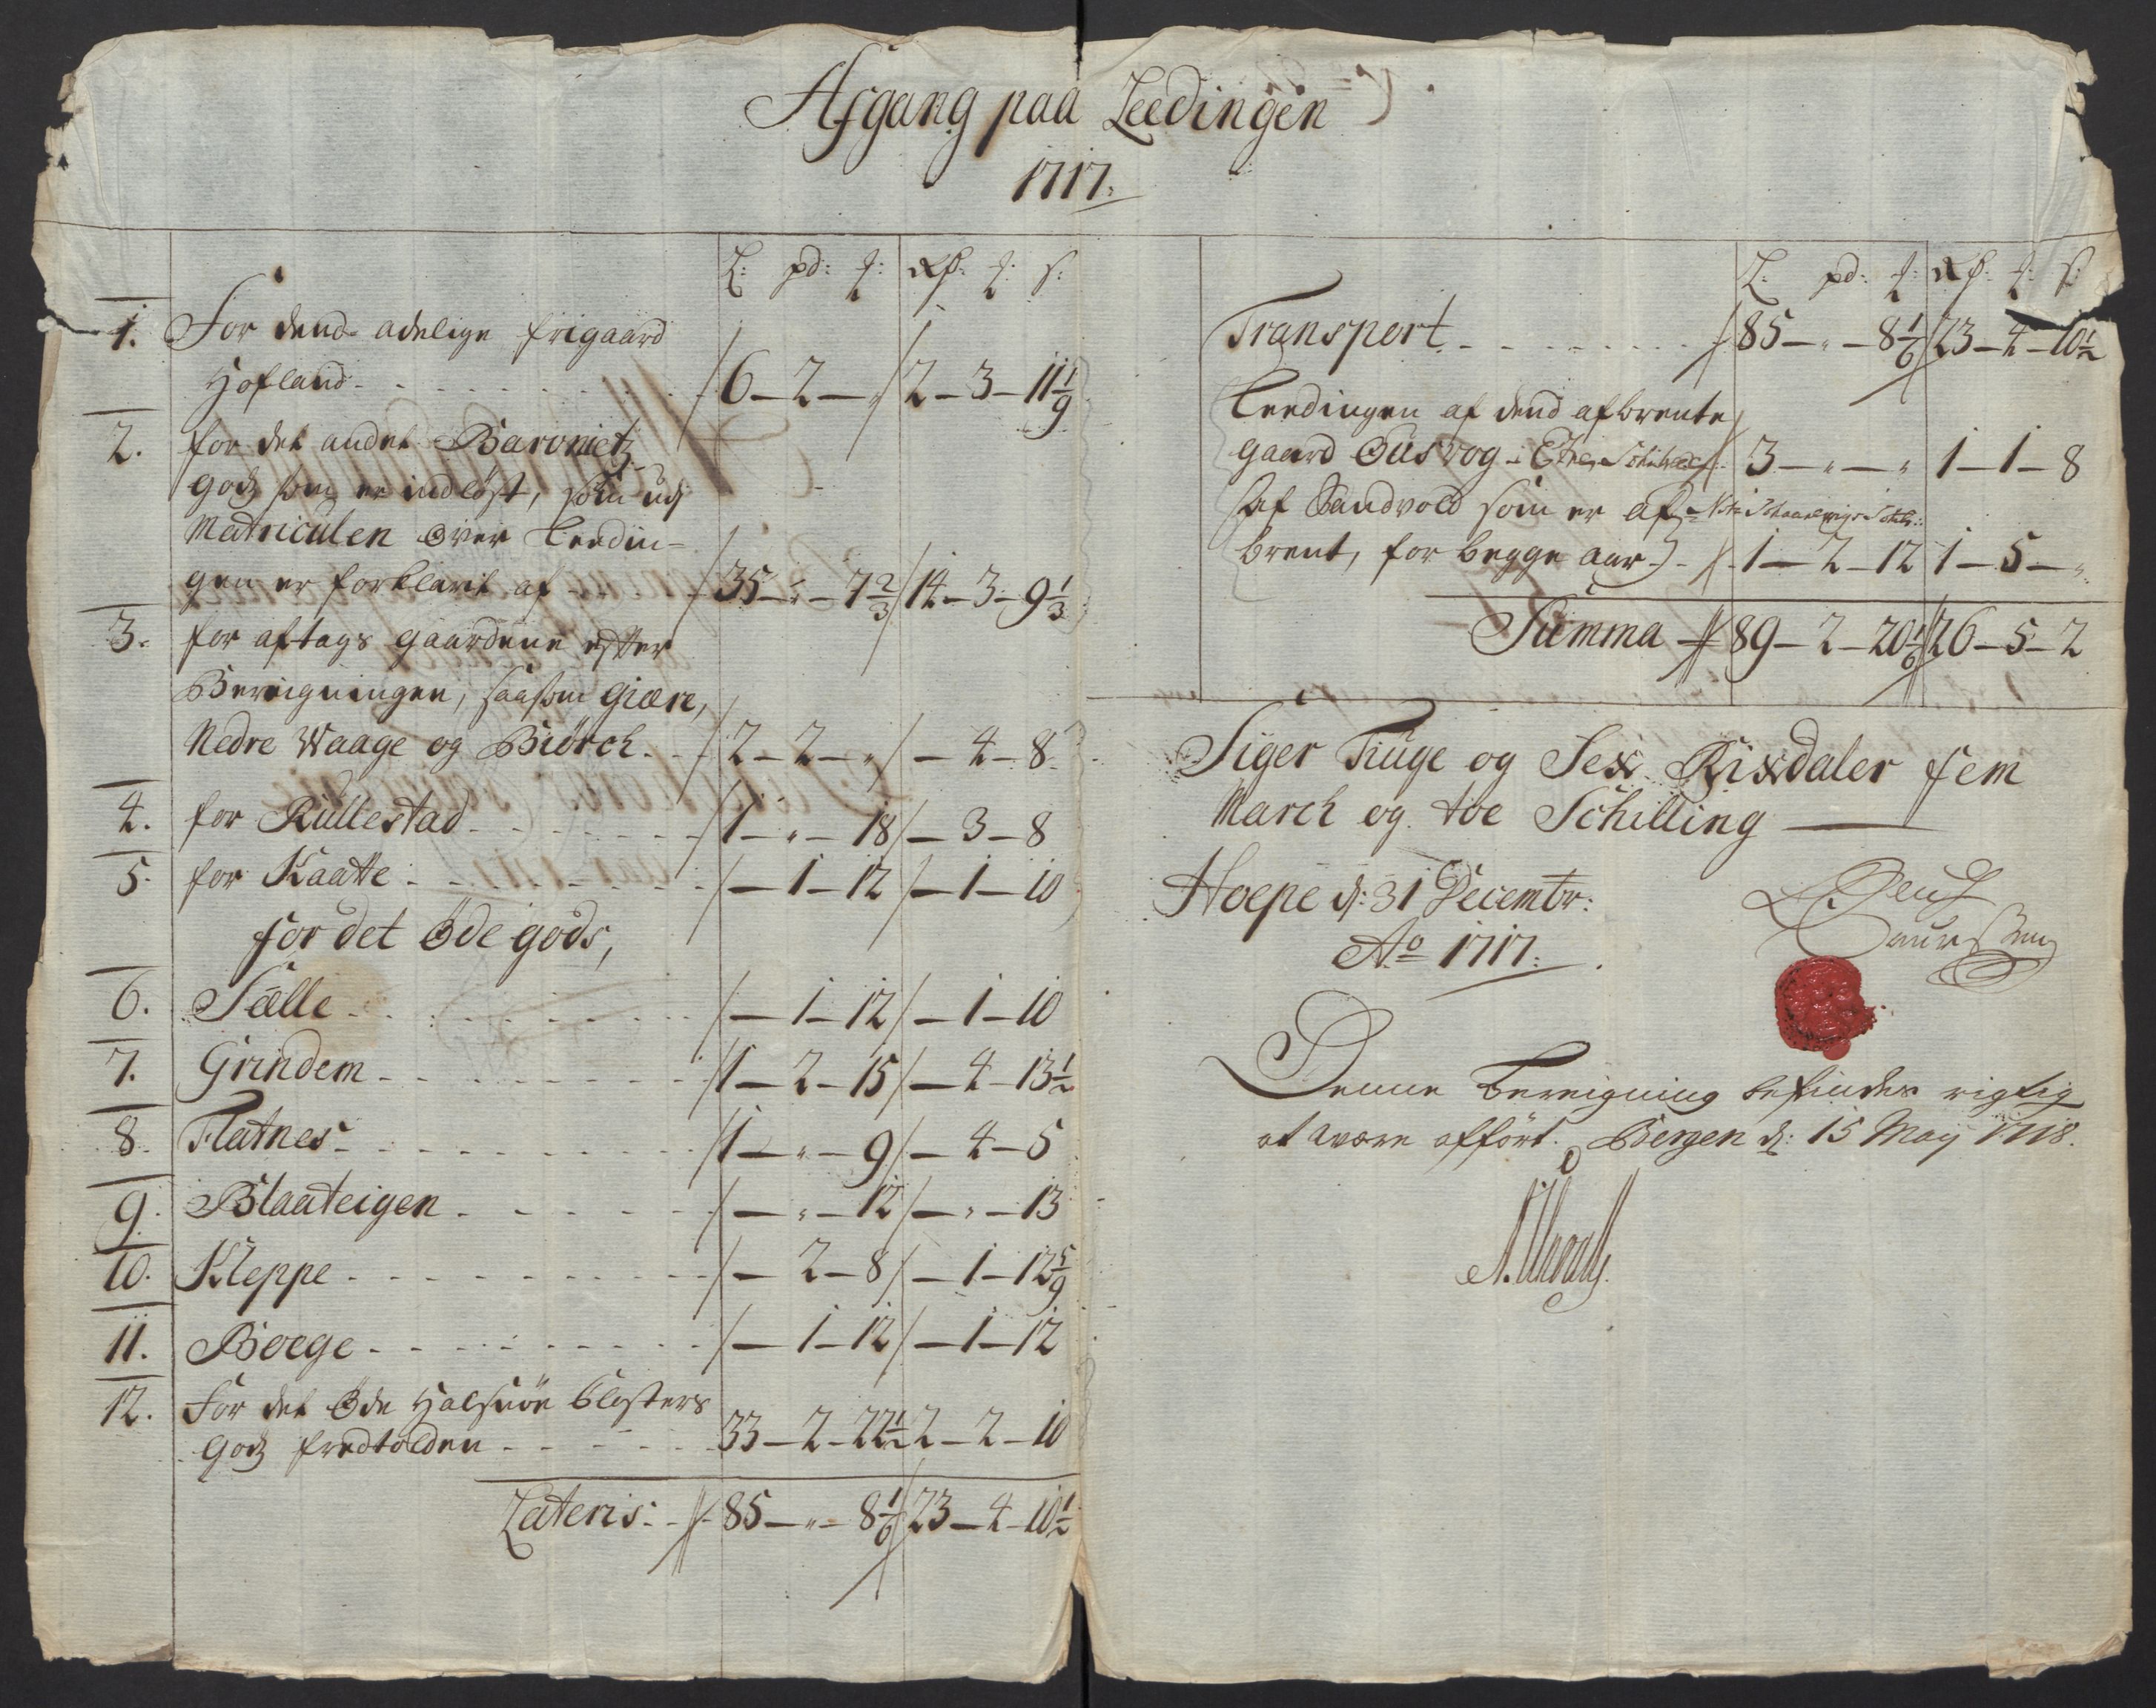 Afgang paa Leedingen
1717.
L: pd: ꝶ: Rß: ꝶ: s:
1. For dend adelige frigaard
Hofland - - - 6 – 2 – " 2 – 3 – 11 1/9
2. for det andet Baroniets
godz som er indlöst, som udj
Matriculen over Leedin-
gen er forklarit af - - 35 – " – 7 2/3 14 – 3 – 9 1/3
3. for aftags gaardene efter
Bereigningen, saasom Giære,
Nedre Waage og Biörch - - 2 – 2 – " – 4 – 8
4. for Rullestad - - - 1 – " – 18 – 3 – 8
5. for Kaatte - - - – 1 – 12 – 1 – 10
for det Öde gods,
6. Sælle - - - – 1 – 12 – 1 – 10
7. Grindem - - - 1 – 2 – 15 – 4 – 13 1/2
8. Flatnes - - - 1 – " – 9 – 4 – 5
9. Blaateigen - - - – " – 12 – " – 13
10. Kleppe - - - – 2 – 8 – 1 – 12 5/9
11. Boege - - - – 1 – 12 – 1 – 12
12. For det Öde Halsnöe Closters
Godz fredtolden - - - 33 – 2 – 22 1/2 2 – 2 – 10
Lateris - - 85 – " – 8 1/6 23 – 4 – 10 1/2
L: pd: ꝶ: Rß: ꝶ: s:
Transport - - - 85 – " – 8 1/6 23 – 4 – 10 1/2
Leedingen af dend afbrente
gaard Öusvog i Etne 3 – " – " 1 – 1 – 8
af Sandvold som er af-
brent, for begge aar - 1 – 2 – 12 1 – 5 – "
Summa 89 – 2 – 20 1/6 26 – 5 – 2
Siger Tiuge og Sex Rixdaler fem
March og toe Schilling
Hoepe d: 31 Decembr:
Ao 1717.
Denne Bereigning befindes rigtig
at være afført. Bergen d: 15 Maij 1718.